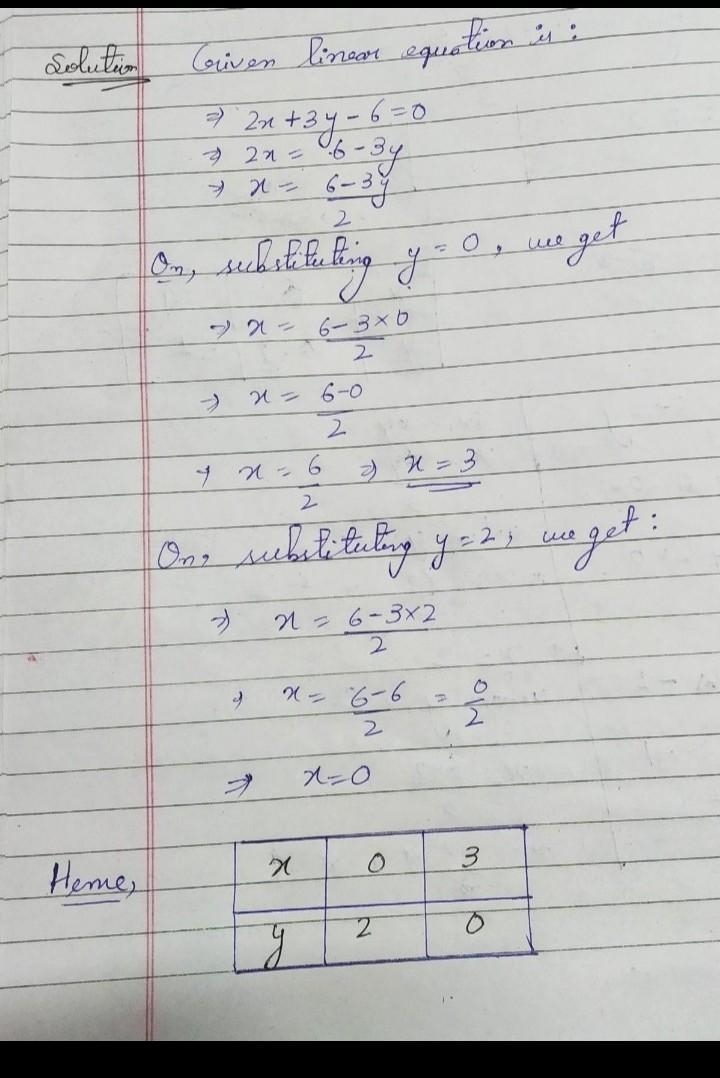 Solution Given linear equation is :
⇒ 2x + 3y - 6 = 0
⇒ 2x = 6 - 3y
⇒ x = 6 - 3y
2
On, substituting y = 0, we get
⇒ x = 6 - 3 × 0
2
⇒ x = 6-0
2
⇒ x = 6 ⇒ x = 3
2
On, substituting y = 2, we get :
⇒ x = 6 - 3×2
2
⇒ x = 6-6 = 0
2 2
⇒ x = 0
Hence,
x 0 3
y 2 0